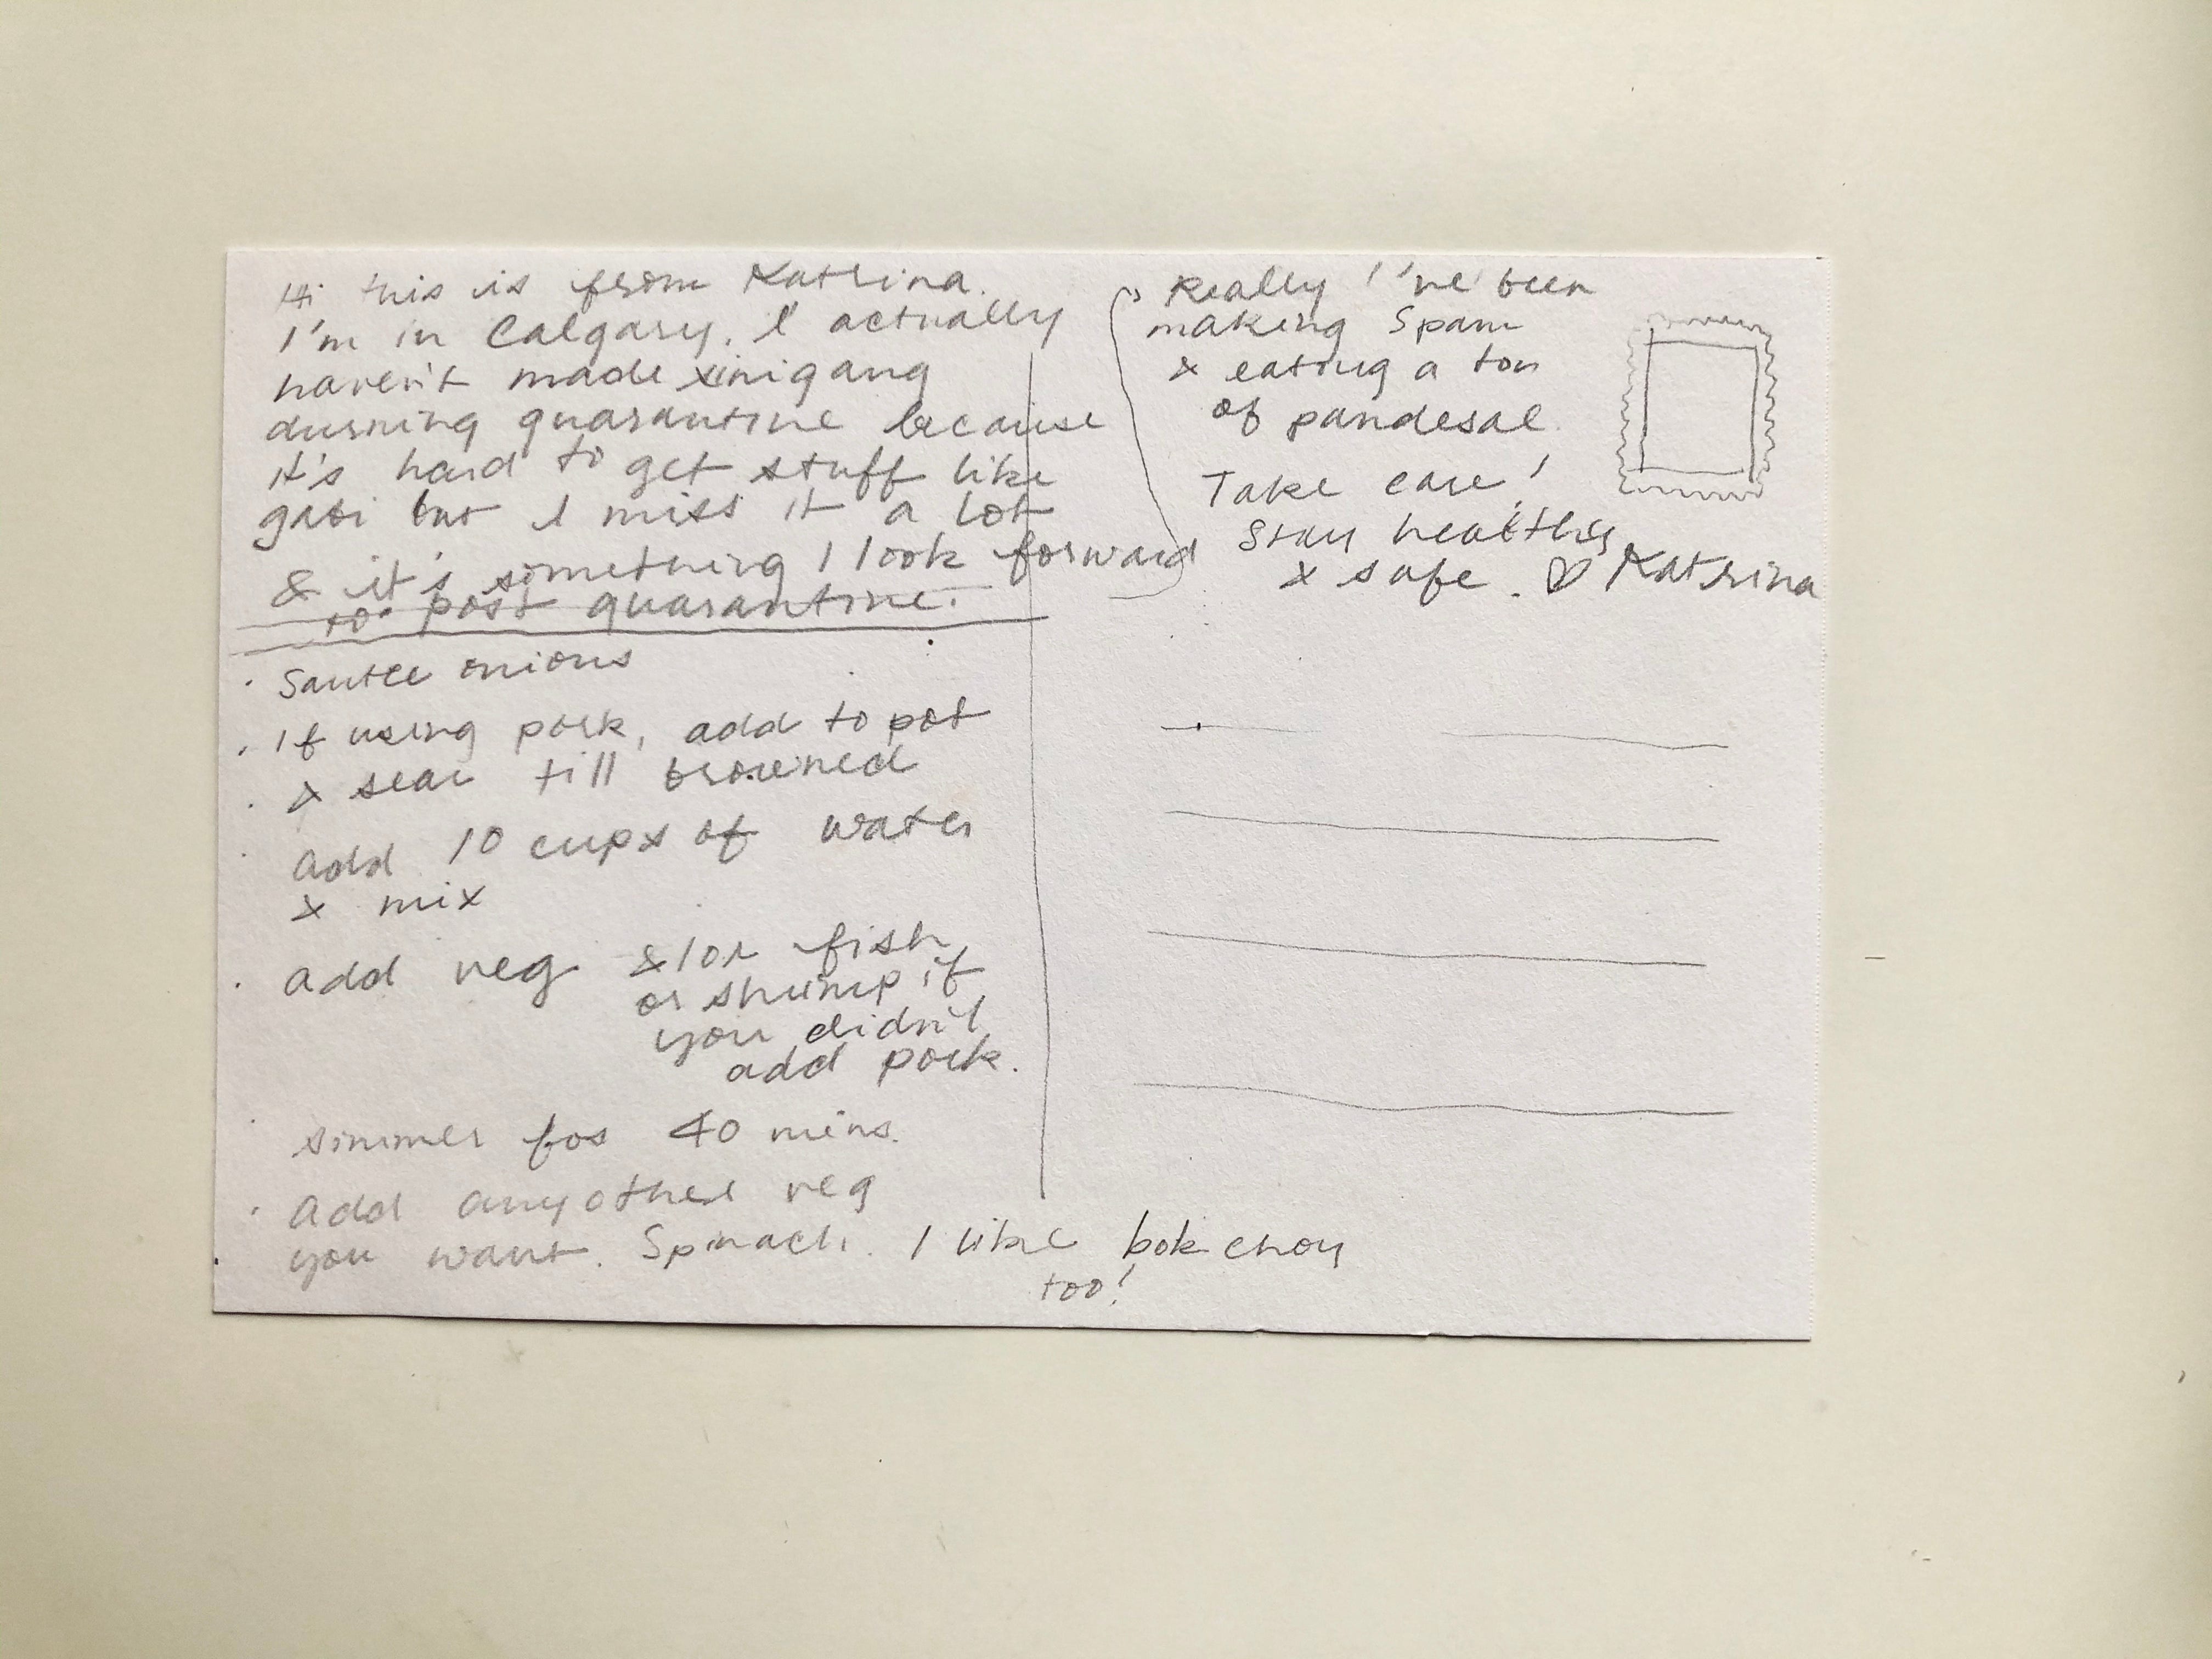 Hi this is from Katrina.
I'm in Calgary. I actually
haven't made sinigang
during quarantine because
it's hard to get stuff like
gabi but I miss it a lot
& it's something I look forward
to post quarantine.
Really I've been
making Spam
& eating a ton
of pandesal.
Take care!
Stay healthy
& safe. ♡ Katrina
· Sautee onions
· If using pork, add to pot
& sear till browned
· Add 10 cups of water
& mix
· add veg &/or fish
or shrimp if
you didn't
add pork.
· simmer for 40 mins.
· Add any other veg
you want. Spinach. I like bok choy
too!